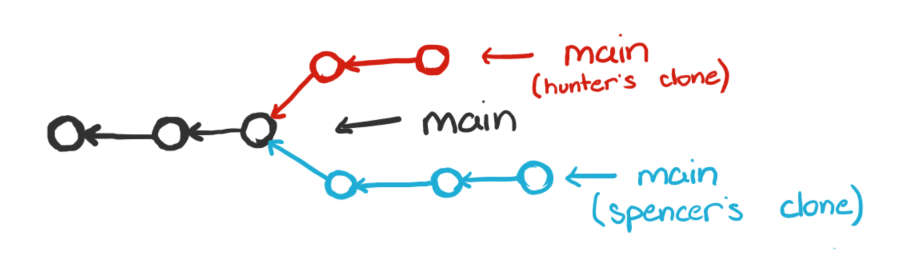 main
(hunter's clone)
main
main
(spencer's clone)